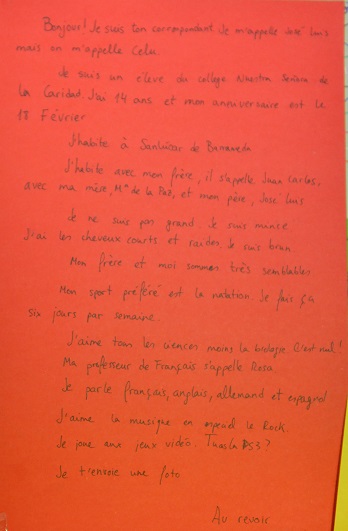 Bonjour! Je suis ton correspondant. Je m'appelle José Luis
mais on m'appelle Celu.
Je suis un élève du collège Nuestra Señora de
la Caridad. J'ai 14 ans et mon anniversaire est le
18 Février
J'habite à Sanlúcar de Barrameda
J'habite avec mon frère, il s'appelle Juan Carlos,
avec ma mère, Mª de la Paz, et mon père, Jose Luis
Je ne suis pas grand. Je suis mince
J'ai les cheveux courts et raides. Je suis brun
Mon frère et moi sommes très semblables
Mon sport préféré est la natation. Je fais ça
six jours par semaine.
J'aime tous les ciences moins la biologie. C'est nul!
Ma professeur de Français s'appelle Rosa.
Je parle français, anglais, allemand et espagnol
J'aime la musique en especial le Rock.
Je joue aux jeux vidéo. Tu as la PS3?
Je t'envoie une foto
Au revoir